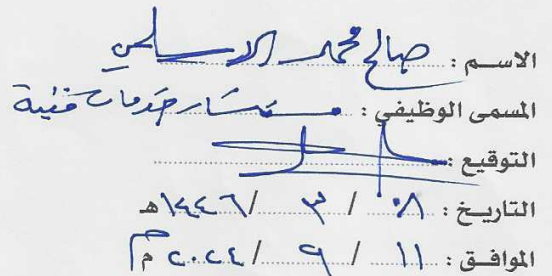 الاسم : صالح محمد الاسلمي
المسمى الوظيفي : مستشار خدمات فنية
التوقيع :
التاريخ : ٠٨ / ٣ / ١٤٤٦هـ
الموافق : ١١ / ٩ / ٢٠٢٤م